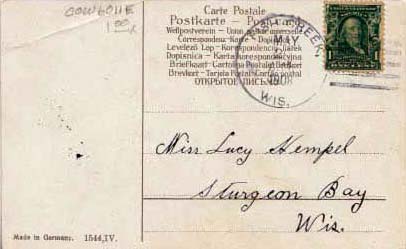 COWBONE
1.00
Carte Postale
Postkarte - Postcard
Weltpostverein - Union postale universelle
Correspondenz-Karte - Dopisnice
Levelező Lap - Korespondencijni listek
Dopisnica - Karta korespondencyjna
Briefkaart - Cartolina Postale
Brevkort - Tarjeta Postal
ОТКРЫТОЕ ПИСЬМО
CREEK,
MAY
1908
WIS.
Miss Lucy Hempel
Sturgeon Bay
Wis.
Made in Germany. 1544,IV.